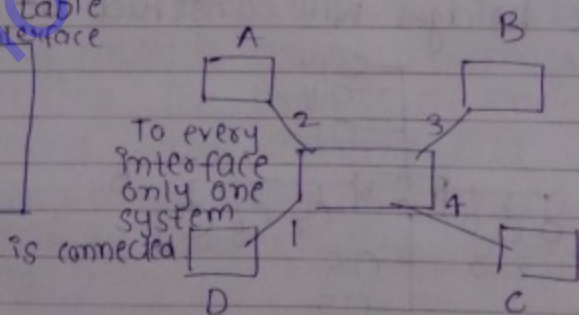 table
A
B
2
3
To every
interface
only one
system
is connected
1
4
D
C